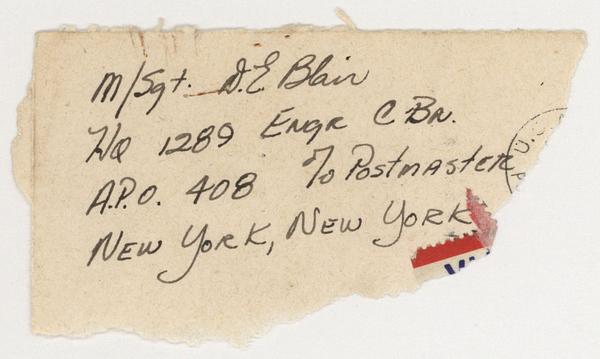 M/Sgt. D.E. Blair
HQ 1289 Engr C Bn.
A.P.O. 408 To Postmaster
New York, New York
U.S.